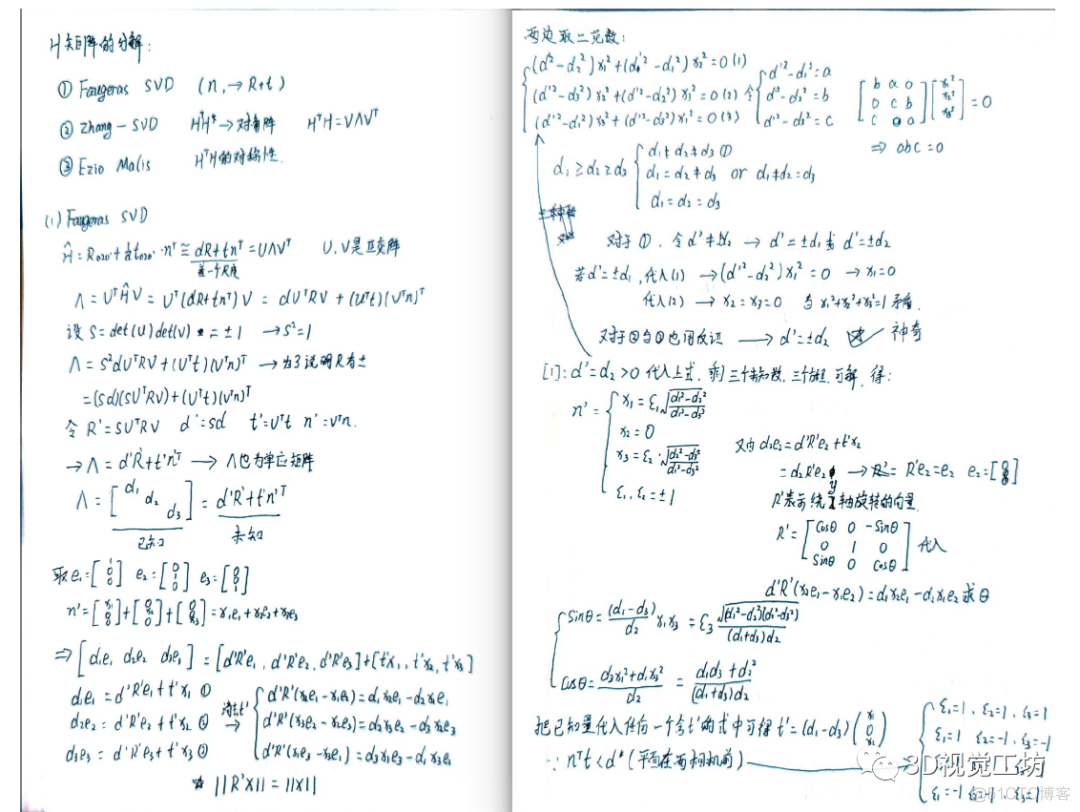 H矩阵的分解:
① Faugeras SVD (n, → R+t)
② Zhang-SVD HᵀH → 对角阵 HᵀH=VΛVᵀ
③ Ezio Malis HᵀH的对称性.
(1) Faugeras SVD
dR+tnᵀ=UΛVᵀ U,V是正交阵
差一个尺度
Λ=UᵀĤV=Uᵀ(dR+tnᵀ)V = dUᵀRV+(Uᵀt)(Vᵀn)ᵀ
设 S=det(U)det(V) = ±1 → S²=1
Λ=S²dUᵀRV+(Uᵀt)(Vᵀn)ᵀ → 为了说明R有±
=(Sd)(SUᵀRV)+(Uᵀt)(Vᵀn)ᵀ
令 R'=SUᵀRV d'=Sd t'=Uᵀt n'=Vᵀn.
→Λ=d'R'+t'n'ᵀ → Λ也为单应矩阵
Λ=[d₁ d₂ d₃]=d'R'+t'n'ᵀ
已知 未知
取e₁=[1 0 0] e₂=[0 1 0] e₃=[0 0 1]
n'=[x₁ 0 0]+[0 x₂ 0]+[0 0 x₃]=x₁e₁+x₂e₂+x₃e₃
⇒[d₁e₁ d₂e₂ d₃e₃]=[d'R'e₁, d'R'e₂, d'R'e₃]+[t'x₁, t'x₂, t'x₃]
d₁e₁=d'R'e₁+t'x₁ ①
d₂e₂=d'R'e₂+t'x₂ ②
d₃e₃=d'R'e₃+t'x₃ ③
消去t' →
d'R'(x₂e₁-x₁e₂)=d₁x₂e₁-d₂x₁e₂
d'R'(x₃e₂-x₂e₃)=d₂x₃e₂-d₃x₂e₃
d'R'(x₁e₃-x₃e₁)=d₃x₁e₃-d₁x₃e₁
||R'X||=||X||
两边取二范数:
(d'²-d₂²)x₁²+(d'²-d₁²)x₂²=0 (1)
(d'²-d₃²)x₂²+(d'²-d₂²)x₃²=0 (2) 令
(d'²-d₁²)x₃²+(d'²-d₃²)x₁²=0 (3)
d'²-d₁²=a
d'²-d₂²=b
d'²-d₃²=c
[b a 0
0 c b
c 0 a]
[x₁²
x₂²
x₃²]=0
⇒ abc=0
d₁≥d₂≥d₃
d₁≠d₂≠d₃ ①
d₁=d₂≠d₃ or d₁≠d₂=d₃
d₁=d₂=d₃
对于①, → d'=±d₁或 d'=±d₂
若d'=±d₁,代入(1) →(d'²-d₂²)x₁²=0 → x₁=0
代入(2) → x₂=x₃=0 与x₁²+x₂²+x₃²=1矛盾.
→ d'=±d₂ 神奇
[1]:d'=d₂>0 代入上式,剩三个未知数,三个方程,可解,得:
n'=
x₁=ε₁√(d₁²-d₂²)/(d₁²-d₃²)
x₂=0
x₃=ε₂·√(d₂²-d₃²)/(d₁²-d₃²)
ε₁,ε₂=±1
又由d₂e₂=d'R'e₂+t'x₂
=d₂R'e₂ → R'e₂=e₂ e₂=[0 1 0]
R'表示绕y轴旋转的向量
R'=[Cosθ 0 -Sinθ
0 1 0
Sinθ 0 Cosθ] 代入
d'R'(x₃e₁-x₁e₃)=d₁x₃e₁-d₃x₁e₃求θ
Sinθ=(d₁-d₃)/d₂ x₁x₃=ε₃√(d₁²-d₂²)(d₂²-d₃²)/(d₁+d₃)d₂
Cosθ=(d₃x₁²+d₁x₃²)/d₂ = (d₁d₃+d₂²)/(d₁+d₃)d₂
把已知量代入任何一个含t'的式中可得t'=(d₁-d₃)
∵nᵀt<d (平面在两相机前)
ε₁=1, ε₂=1, ε₃=1
ε₁=1 ε₂=-1, ε₃=-1
3D视觉工坊
@51CTO博客